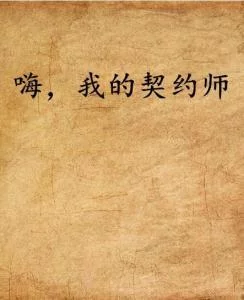 嗨，我的契约师